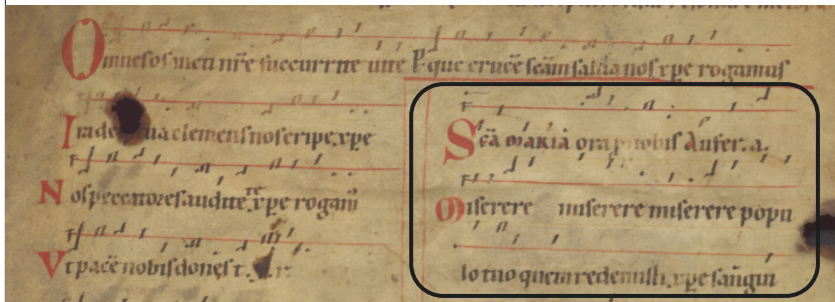 Omnes os meti nr̄e succurrite uite P que crucē scām salua nos xp̄e rogamus
Ira de tua clemens nos eripe xp̄e
Nos peccatores audite xp̄e rogam̄
Vt pacē nobis dones t
Scā maria ora p nobis Aufer. a.
Miserere miserere miserere popu
lo tuo quem redemisti xp̄e sangui